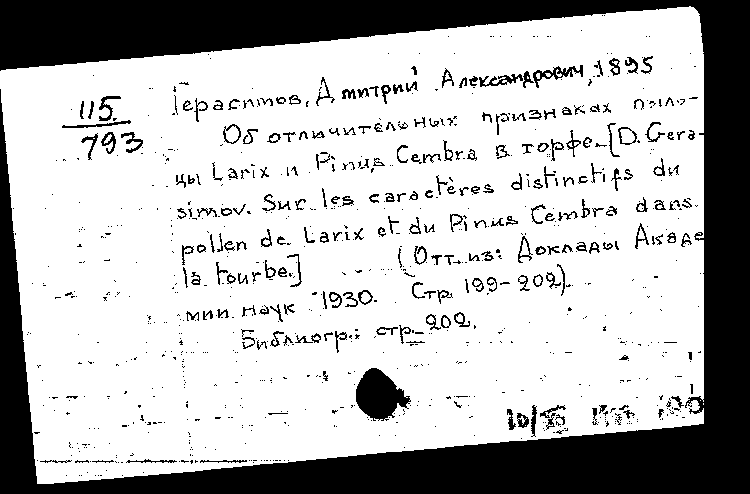 115
793
Герасимов, Дмитрий Александрович, 1895
Об отличительных признаках пыль-
цы Larix и Pinus Cembra в торфе. [D. Gera-
simov. Sur les caractères distinctifs du
pollen de Larix et du Pinus Cembra dans
la tourbe.] (Отт. из: Доклады Акаде
мии наук 1930. Стр. 199-202).
Библиогр.: стр. 202.